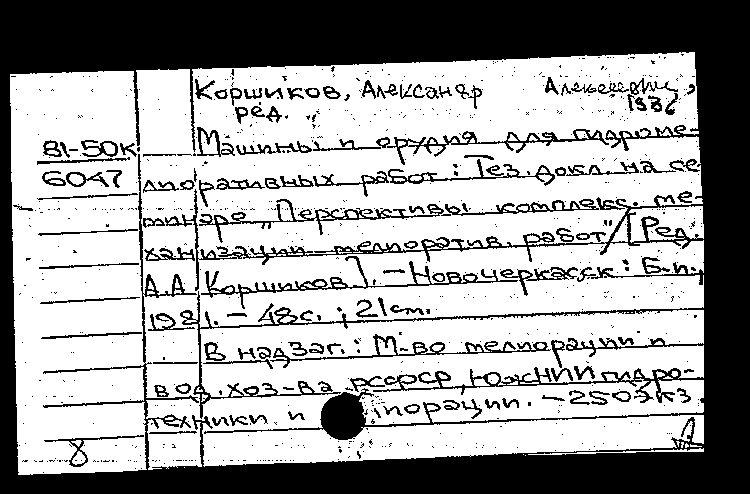 Коршиков, Александр Алексеевич,
ред. 1936
81-50к Машины и орудия для гидроме-
6047 лиоративных работ : Тез. докл. на се
минаре „Перспективы комплекс. ме-
ханизации мелиоратив. работ" / [Ред.
А.А. Коршиков]. – Новочеркасск : Б.и.,
1981. – 48с. ; 21см.
В надзаг.: М-во мелиорации и
вод. хоз-ва РСФСР, ЮжНИИ гидро-
техники и лиорации. – 250экз.
8